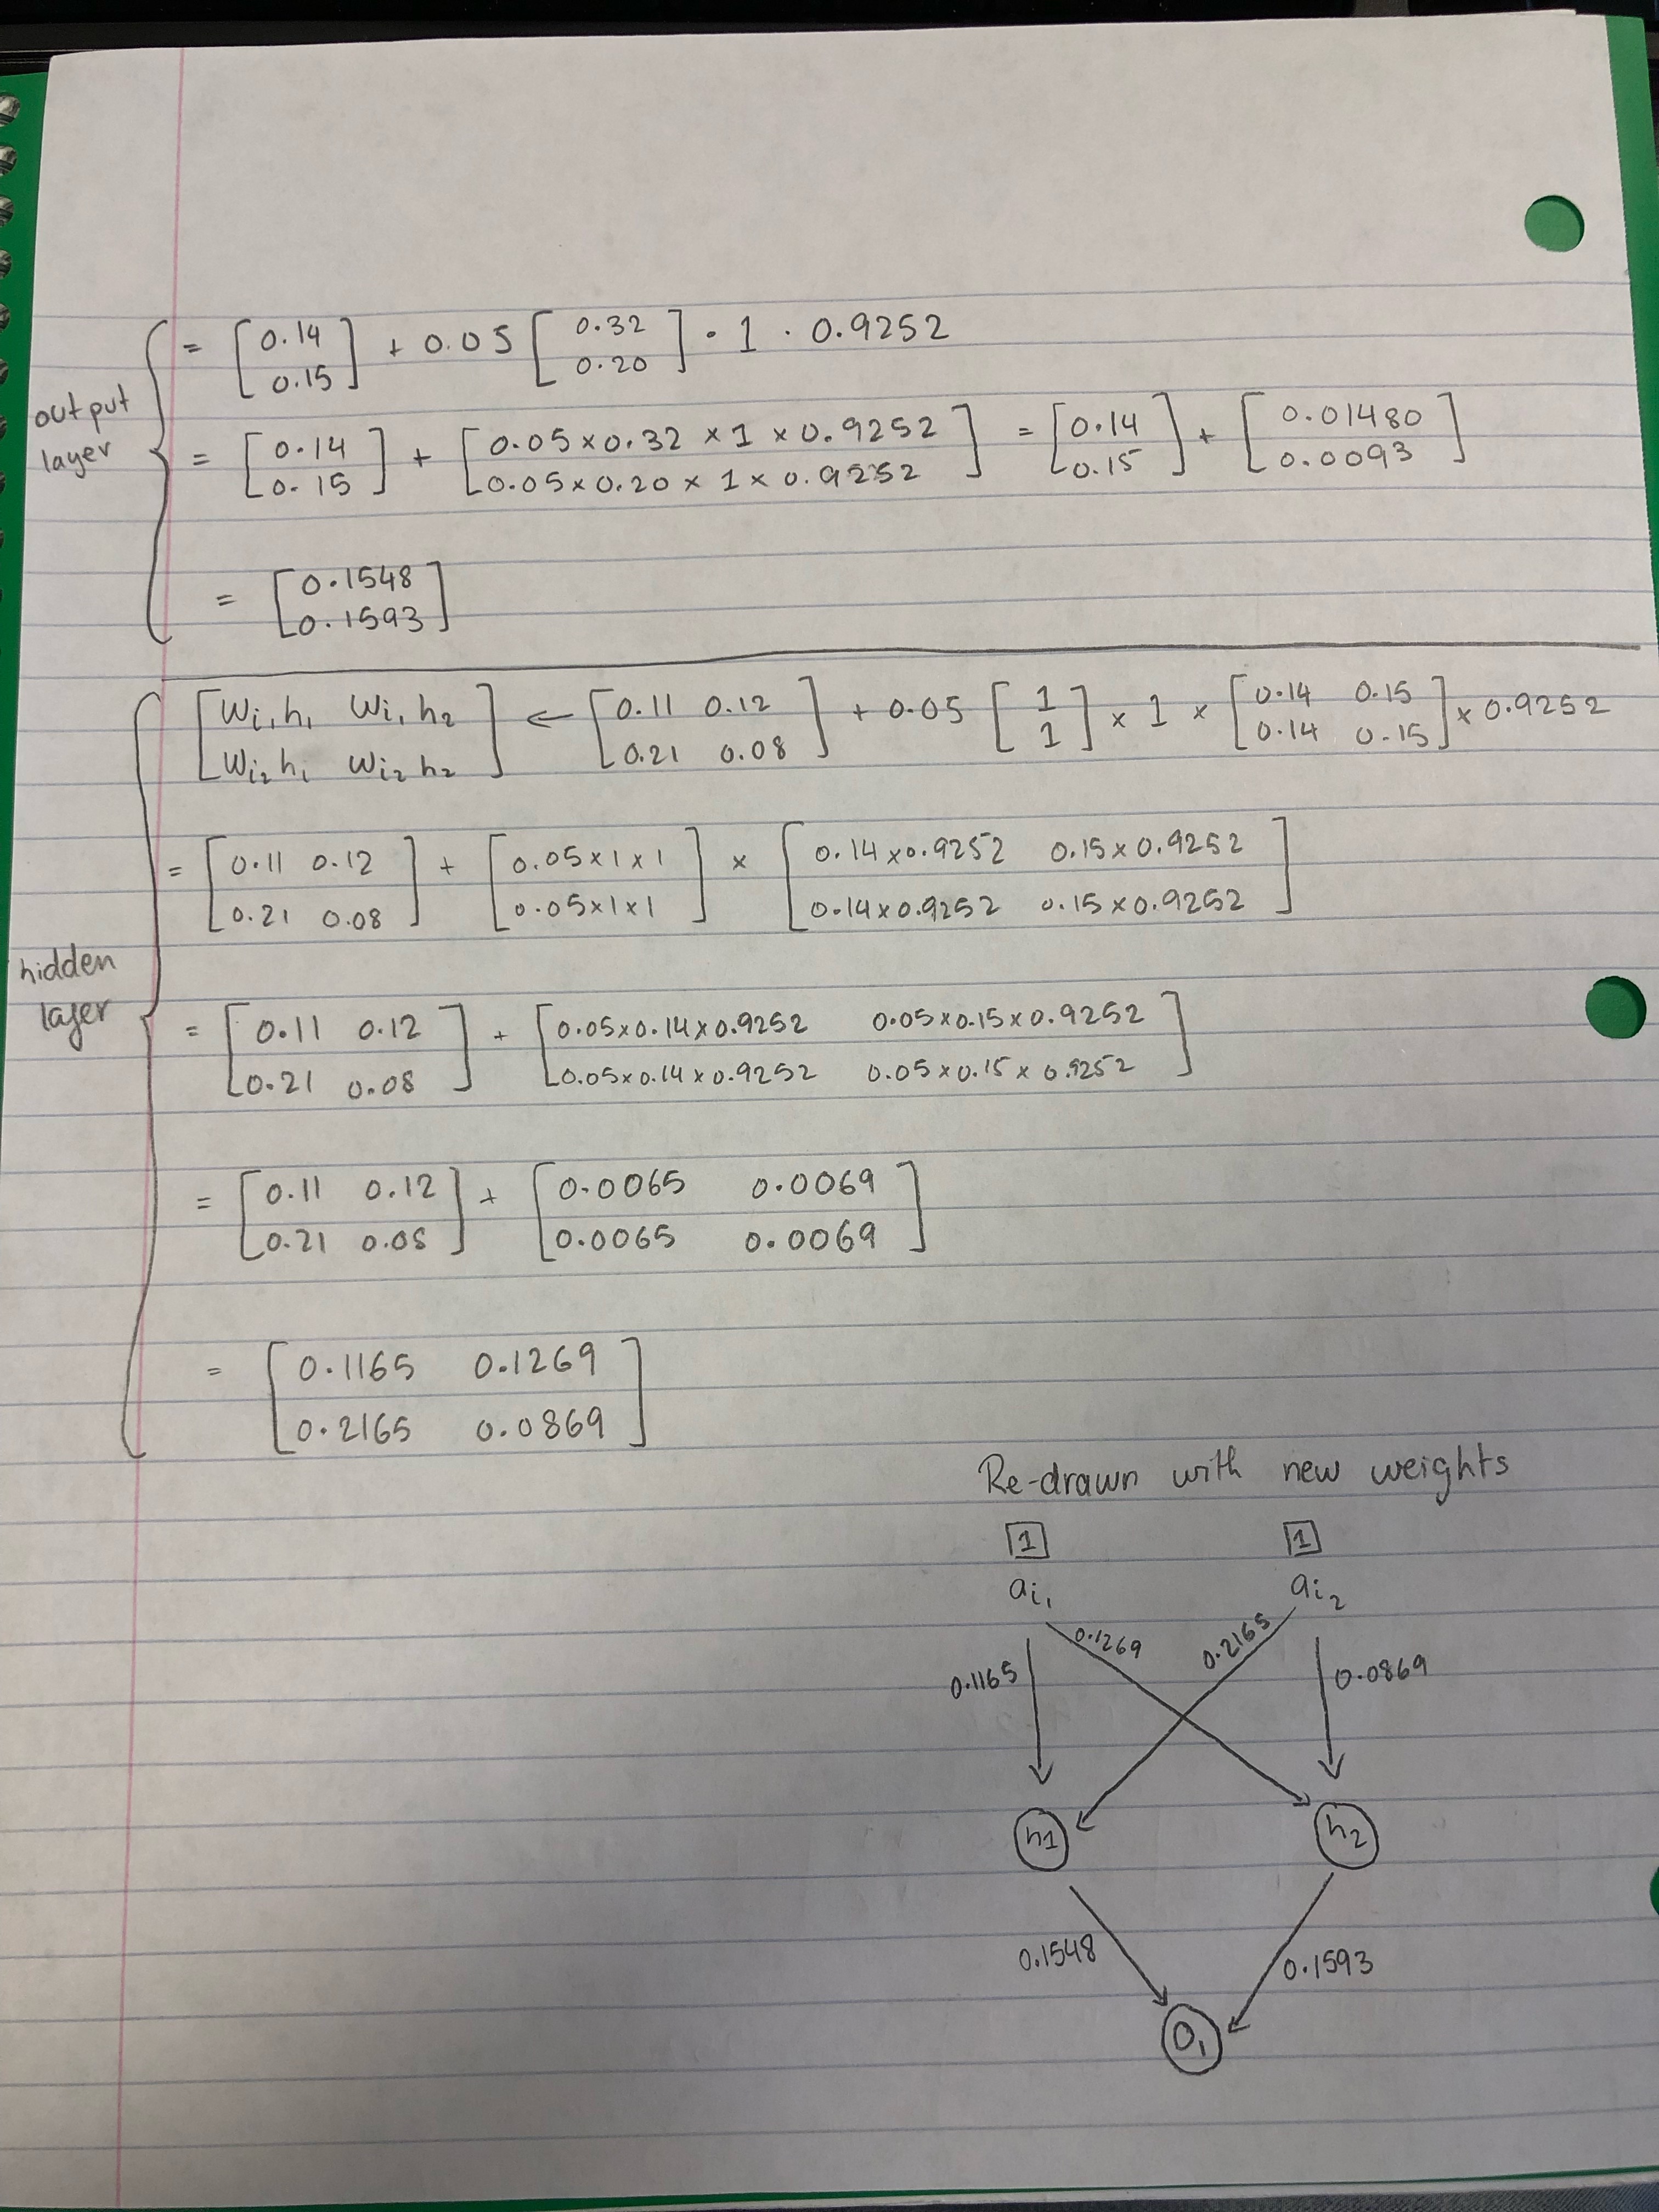 = [0.14 0.15] + 0.05 [0.32 0.20] · 1 · 0.9252
output layer
= [0.14 0.15] + [0.05 × 0.32 × 1 × 0.9252 0.05 × 0.20 × 1 × 0.9252] = [0.14 0.15] + [0.01480 0.0093]
= [0.1548 0.1593]
[Wi₁h₁ Wi₁h₂
Wi₂h₁ Wi₂h₂] ← [0.11 0.12
0.21 0.08] + 0.05 [1 1] × 1 × [0.14 0.15
0.14 0.15] × 0.9252
= [0.11 0.12
0.21 0.08] + [0.05×1×1
0.05×1×1] × [0.14×0.9252 0.15×0.9252
0.14×0.9252 0.15×0.9252]
hidden layer
= [0.11 0.12
0.21 0.08] + [0.05×0.14×0.9252 0.05×0.15×0.9252
0.05×0.14×0.9252 0.05×0.15×0.9252]
= [0.11 0.12
0.21 0.08] + [0.0065 0.0069
0.0065 0.0069]
= [0.1165 0.1269
0.2165 0.0869]
Re-drawn with new weights
1 1
ai₁ ai₂
0.1165 0.1269 0.2165 0.0869
h1 h2
0.1548 0.1593
O₁